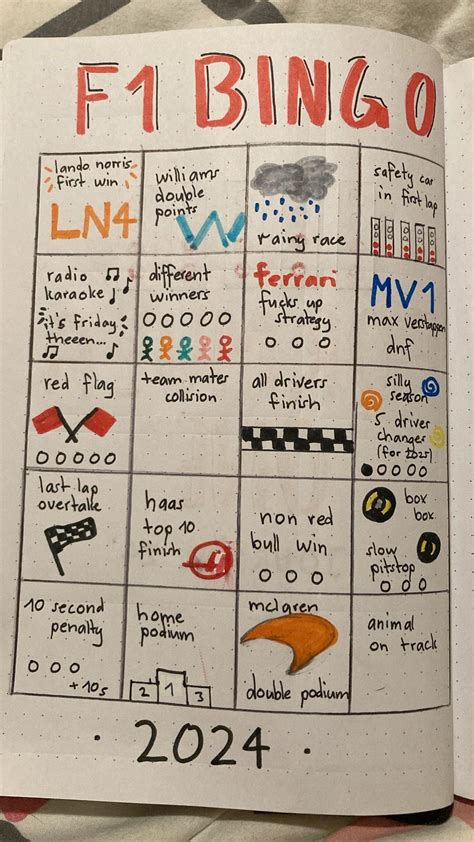 F1 BINGO
lando norris
first win
LN4
williams
double
points
W
rainy race
safety car
in first lap
radio
karaoke
it's friday
theeen...
different
winners
ferrari
fucks up
strategy
MV1
max verstappen
dnf
red flag
team mates
collision
all drivers
finish
silly
season
5 driver
changes
(for 2025)
last lap
overtake
haas
top 10
finish
non red
bull win
box
box
slow
pitstop
10 second
penalty
+10s
home
podium
2 1 3
mclaren
double podium
animal
on track
· 2024 ·